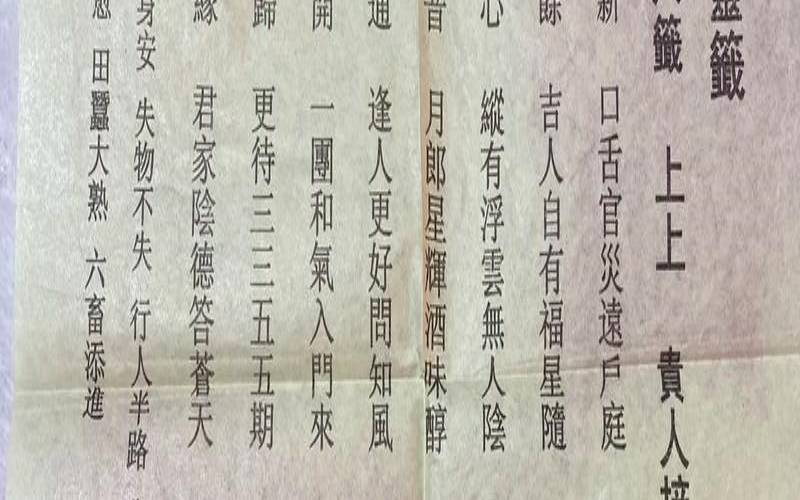 靈籤
籤 上上 貴人
新 口舌官災遠戶庭
餘 吉人自有福星隨
心 縱有浮雲無人陰
音 月郎星輝酒味醇
通 逢人更好問知風
開 一團和氣入門來
歸 更待三三五五期
緣 君家陰德答蒼天
身安 失物不失 行人半路
田蠶大熟 六畜添進